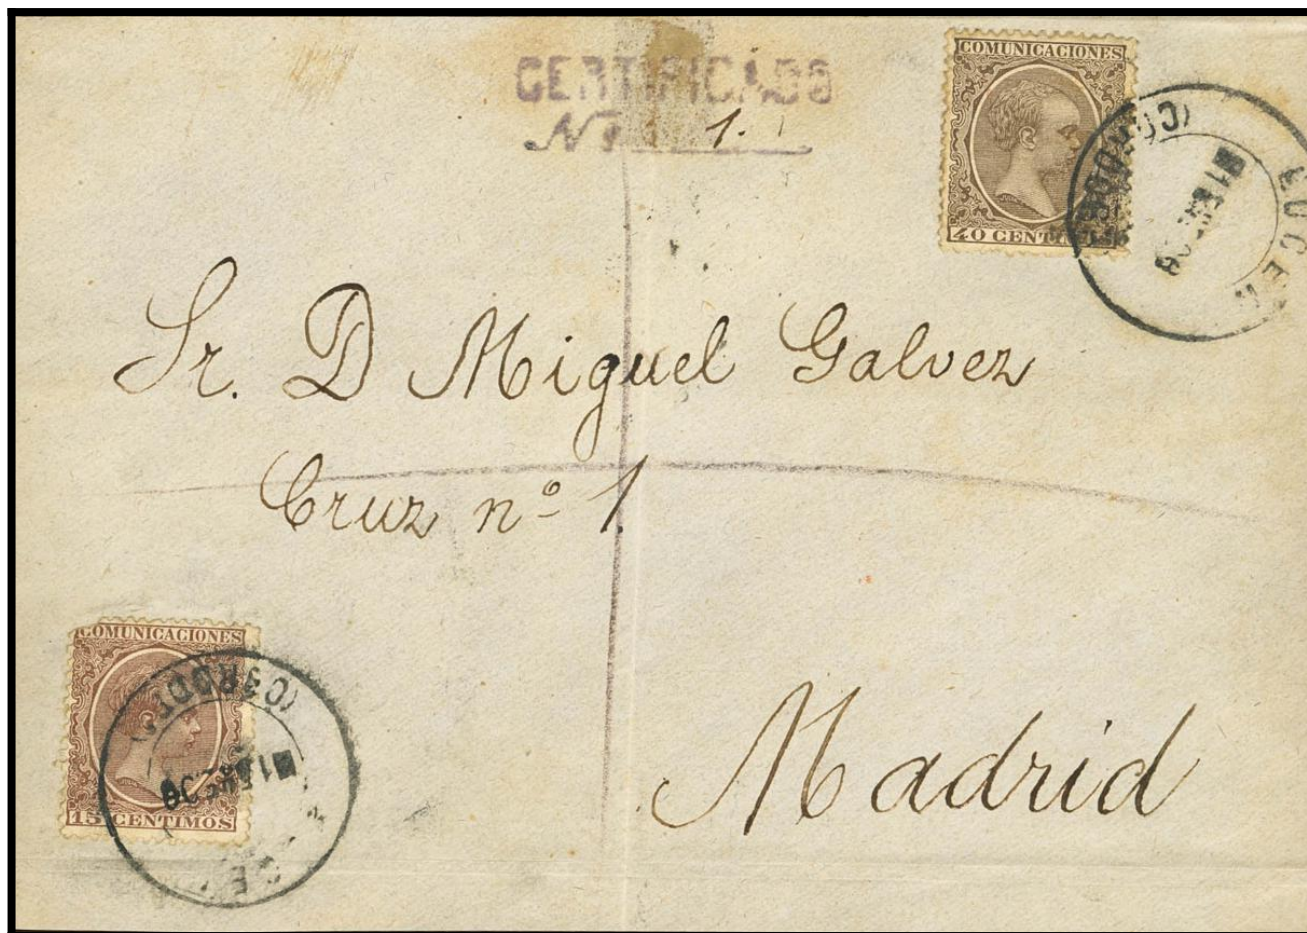 CERTIFICADO
Nº 1.
COMUNICACIONES
40 CENTIMOS
Sr. D Miguel Galvez
Cruz nº 1.
Madrid
COMUNICACIONES
15 CENTIMOS